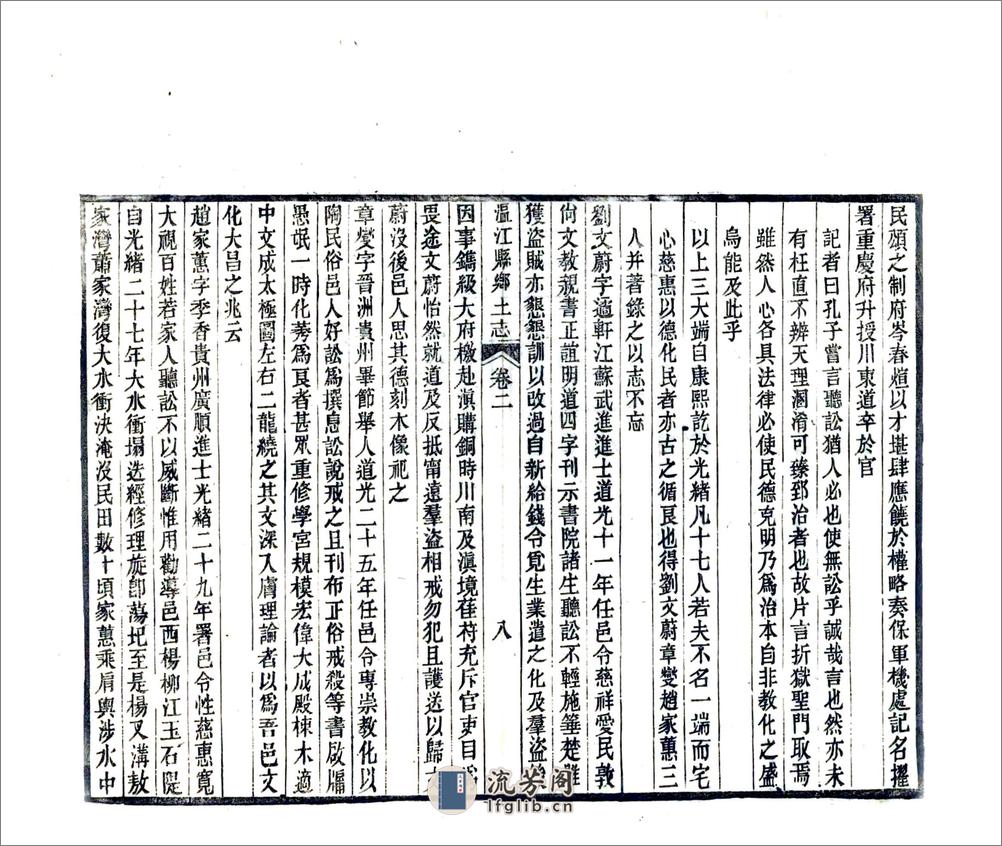 民頌之制府岑春煊以才堪肆應饒於權略奏保軍機處記名擢
署重慶府升授川東道卒於官
記者曰孔子嘗言聽訟猶人必也使無訟乎誠哉言也然亦未
有枉直不辨天理溷淆可臻郅治者也故片言折獄聖門取焉
雖然人心各具法律必使民德克明乃為治本自非教化之盛
烏能及此乎
以上三大端自康熙訖於光緒凡十七人若夫不名一端而宅
心慈惠以德化民者亦古之循良也得劉文蔚章燮趙家蕙三
人并著錄之以志不忘
劉文蔚字邁軒江蘇武進進士道光十一年任邑令慈祥愛民敦
尚文教親書正誼明道四字刊示書院諸生聽訟不輕施箠楚雖
獲盜賊亦懇懇訓以改過自新給錢令覓生業遣之化及羣盜
溫江縣鄉土志 卷二 八
因事鐫級大府檄赴滇購銅時川南及滇境萑苻充斥官吏目為
畏途文蔚怡然就道及反抵甯遠羣盜相戒勿犯且護送以歸
蔚沒後邑人思其德刻木像祀之
章燮字晉洲貴州畢節舉人道光二十五年任邑令專崇教化以
陶民俗邑人好訟為撰息訟說戒之且刊布正俗戒殺等書啟牖
愚氓一時化莠為良者甚眾重修學宮規模宏偉大成殿棟木適
中文成太極圖左右二龍繞之其文深入膚理論者以為吾邑文
化大昌之兆云
趙家蕙字季香貴州廣順進士光緒二十九年署邑令性慈惠寬
大視百姓若家人聽訟不以威斷惟用勸導邑西楊柳江玉石隄
自光緒二十七年大水衝塌迭經修理旋卽蕩圮至是楊叉溝敖
家灣蕭家灣復大水衝決淹沒民田數十頃家蕙乘肩輿涉水中
流芳阁
lfglib.cn